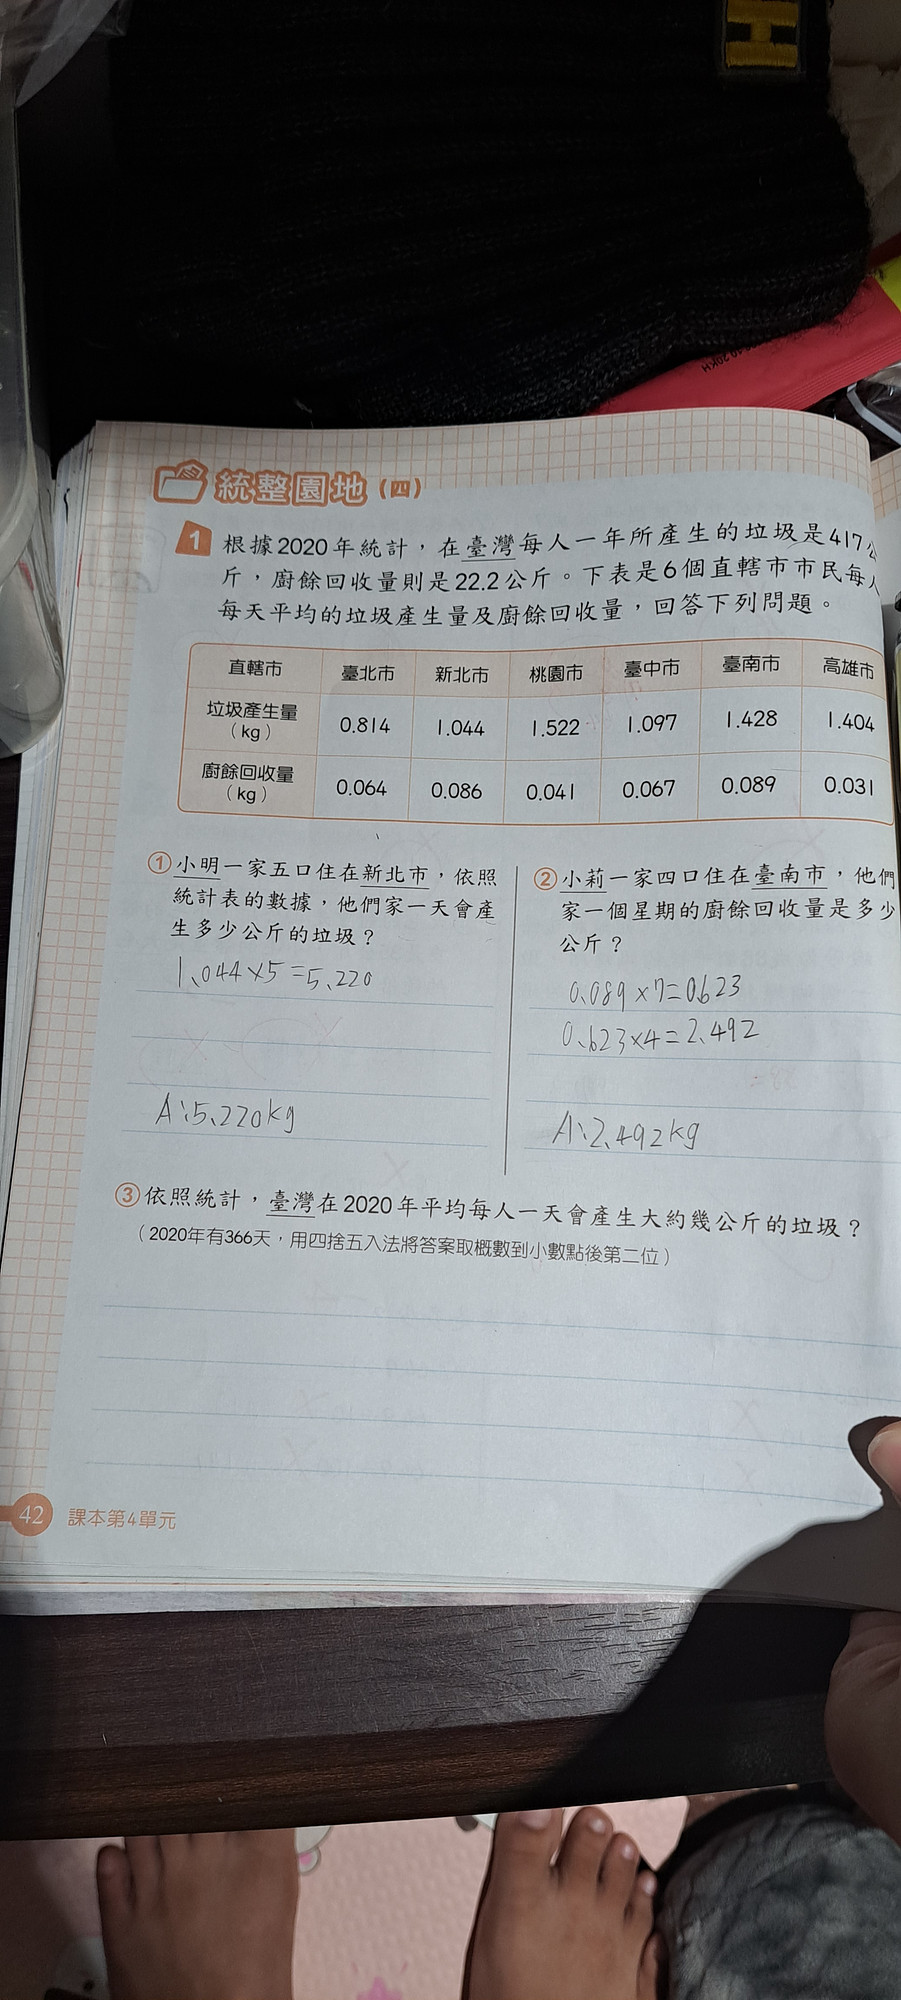 H
統整園地(四)
1 根據2020年統計，在臺灣每人一年所產生的垃圾是417公
斤，廚餘回收量則是22.2公斤。下表是6個直轄市市民每人
每天平均的垃圾產生量及廚餘回收量，回答下列問題。
直轄市 臺北市 新北市 桃園市 臺中市 臺南市 高雄市
垃圾產生量（kg） 0.814 1.044 1.522 1.097 1.428 1.404
廚餘回收量（kg） 0.064 0.086 0.041 0.067 0.089 0.031
①小明一家五口住在新北市，依照
統計表的數據，他們家一天會產
生多少公斤的垃圾？
1.044×5=5.220
A:5.220kg
②小莉一家四口住在臺南市，他們
家一個星期的廚餘回收量是多少
公斤？
0.089×7=0.623
0.623×4=2.492
A:2.492kg
③依照統計，臺灣在2020年平均每人一天會產生大約幾公斤的垃圾？
（2020年有366天，用四捨五入法將答案取概數到小數點後第二位）
42 課本第4單元